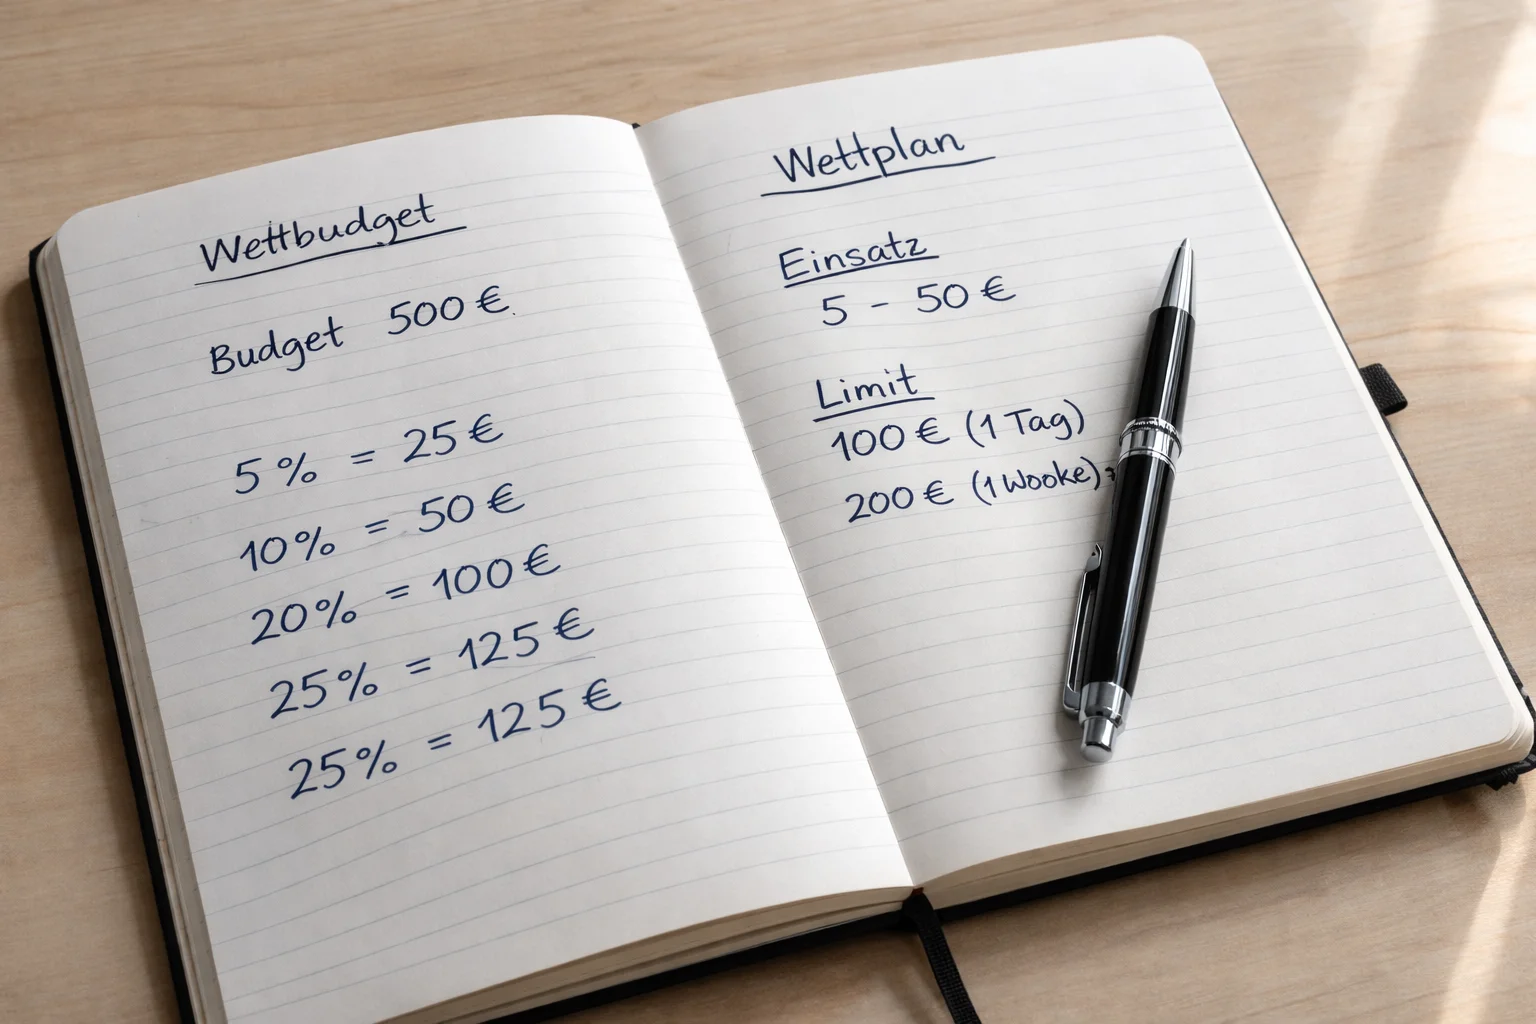 Wettbudget
Budget 500 €
5% = 25 €
10% = 50 €
20% = 100 €
25% = 125 €
25% = 125 €
Wettplan
Einsatz
5 - 50 €
Limit
100 € (1 Tag)
200 € (1 Wooke)